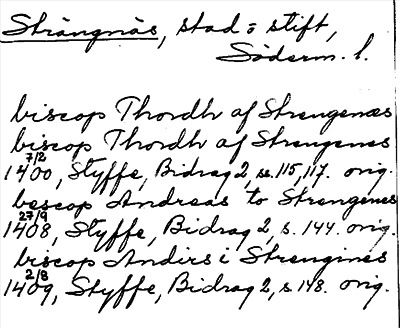 Strängnäs, stad o stift,
Söderm. l.
biscop Thordh af Strengenæs
biscop Thordh af Strengenes
1400 7/2, Styffe, Bidrag 2, ss. 115, 117. orig.
bescop Andreas to Strengenes
1408 27/9, Styffe, Bidrag 2, s. 144. orig.
biscop Andirs i Strengines
1409 2/8, Styffe, Bidrag 2, s. 148. orig.